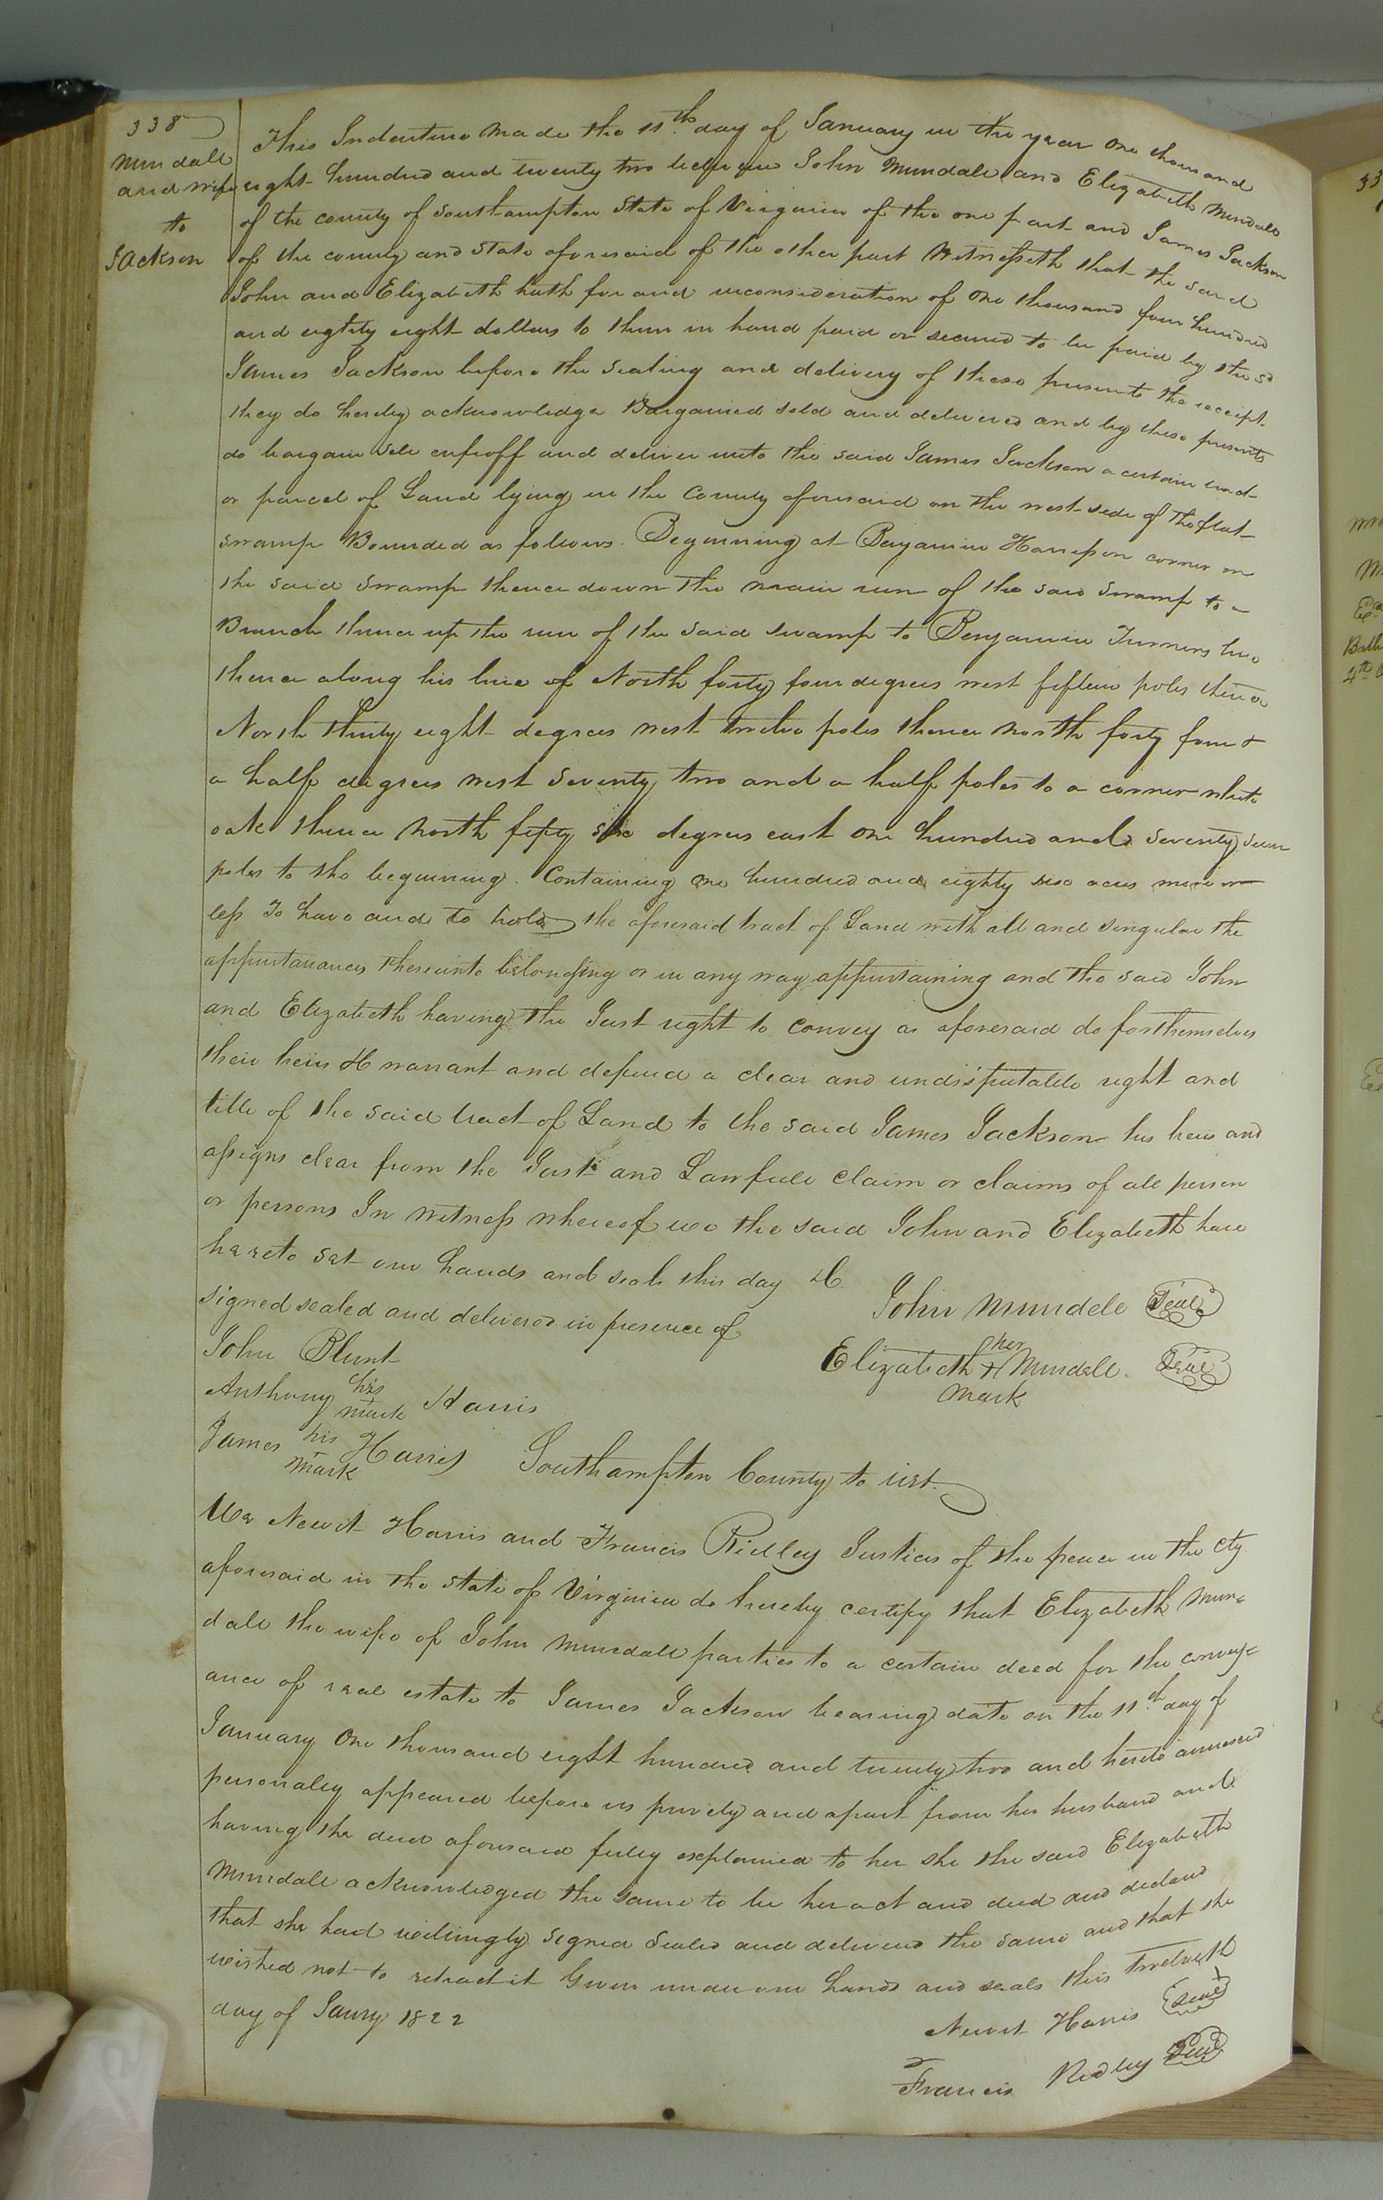 338
Mundall
and wife
to
Jackson
This Indenture made the 11th day of January in the year one thousand
eight hundred and twenty two between John Mundall and Elizabeth Mundall
of the county of Southampton State of Virginia of the one part and James Jackson
of the county and State aforesaid of the other part Witnesseth that the said
John and Elizabeth hath for and inconsideration of one thousand four hundred
and eightity eight dollars to them in hand paid or secured to be paid by the sd
James Jackson before the sealing and delivery of these presents the receipt
they do hereby acknowledge Bargained sold and delivered and by these presents
do bargain sell enfeoff and deliver unto the said James Jackson a certain tract
or parcel of Land lying in the County aforesaid on the west side of the flat
swamp Bounded as follows. Beginning at Benjamin Harrison corner on
the said swamp thence down the main run of the said swamp to a
Branch thence up the run of the said swamp to Benjamin Turners line
thence along his line of North forty four degrees west fifteen poles thence
North thirty eight degrees west twelve poles thence north forty four &
a half degrees west seventy two and a half poles to a corner white
oak thence north fifty six degrees east one hundred and seventy seven
poles to the beginning. Containing one hundred and eighty six acres more or
less To have and to hold the aforesaid tract of Land with all and singular the
appurtanances thereunto belonging or in any way appurtaining and the said John
and Elizabeth having the Just right to convey as aforesaid do for themselves
their heirs &c warrant and defend a clear and undisputable right and
title of the said tract of Land to the said James Jackson his heirs and
assigns clear from the Just and Lawfull claim or claims of all person
or persons In witness whereof we the said John and Elizabeth have
hereto set our hands and seals this day &c.
signed sealed and delivered in presence of
John Mundell Seal
John Blunt
her
Elizabeth + Mundell. Seal
mark
his
Anthony + Harris
mark
his
James + Harris
mark
Southampton County to wit.
We Newit Harris and Francis Ridley Justices of the peace in the cty
aforesaid in the State of Virginia do hereby certify that Elizabeth Mun=
dall the wife of John Mundall parties to a certain deed for the convey=
ance of real estate to James Jackson bearing date on the 11th day of
January One thousand eight hundred and twenty two and hereto annexed
personaley appeared before us privily and apart from her husband and
having the deed aforesaid fulley explained to her she the said Elizabeth
Mundall acknowledged the same to be her act and deed and declared
that she had willingly signed sealed and delivered the same and that she
wished not to retract it Given under our hands and seals this twelveth
day of Janry 1822
Newit Harris Seal
Francis Ridley Seal
33